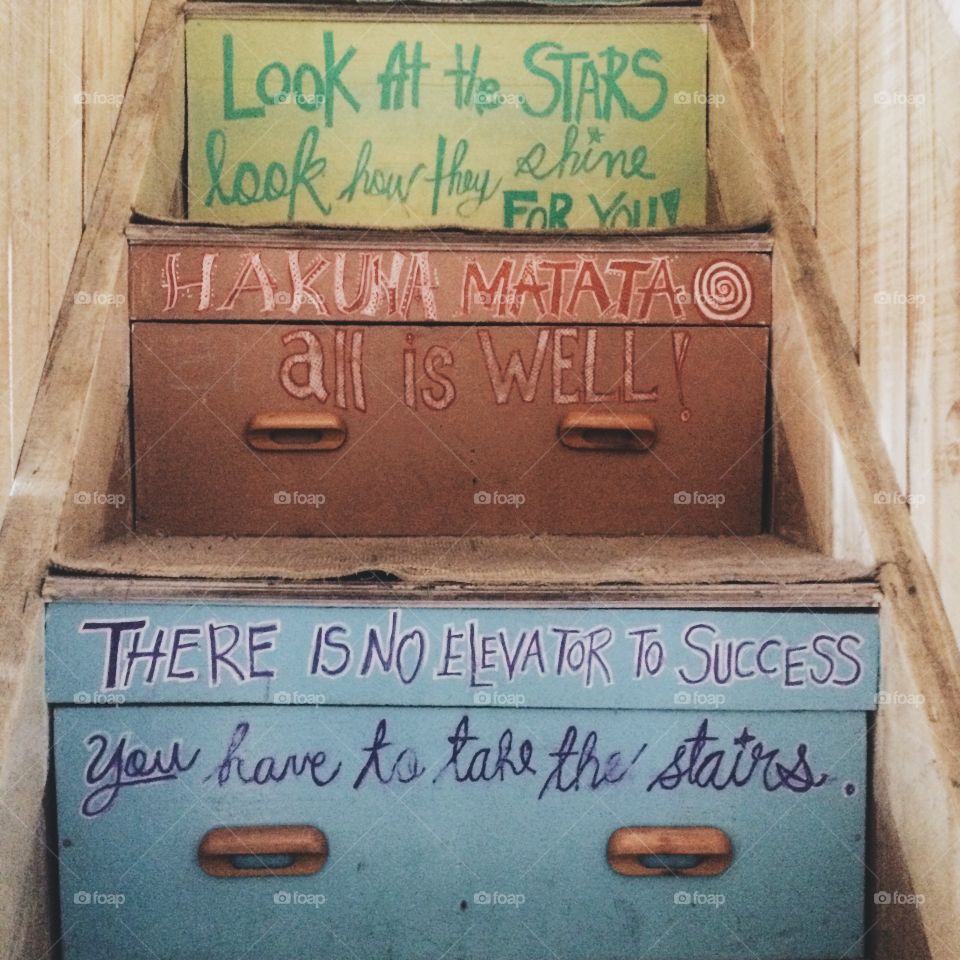 LOOK At the STARS
look how they shine
FOR YOU!
HAKUNA MATATA
all is WELL!
THERE IS NO ELEVATOR TO SUCCESS
You have to take the stairs.